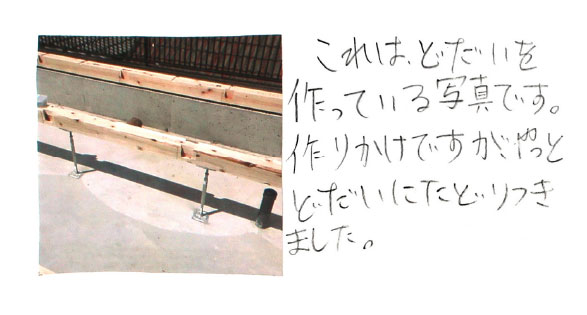 これは、どだいを
作っている写真です。
作りかけですが、やっと
どだいにたどりつき
ました。